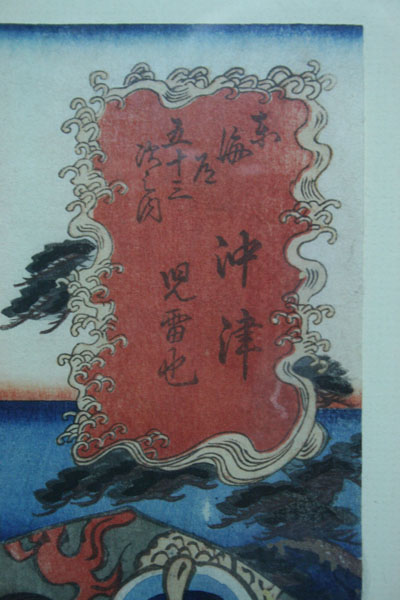 東海道
五十三次之内
沖津
児雷也